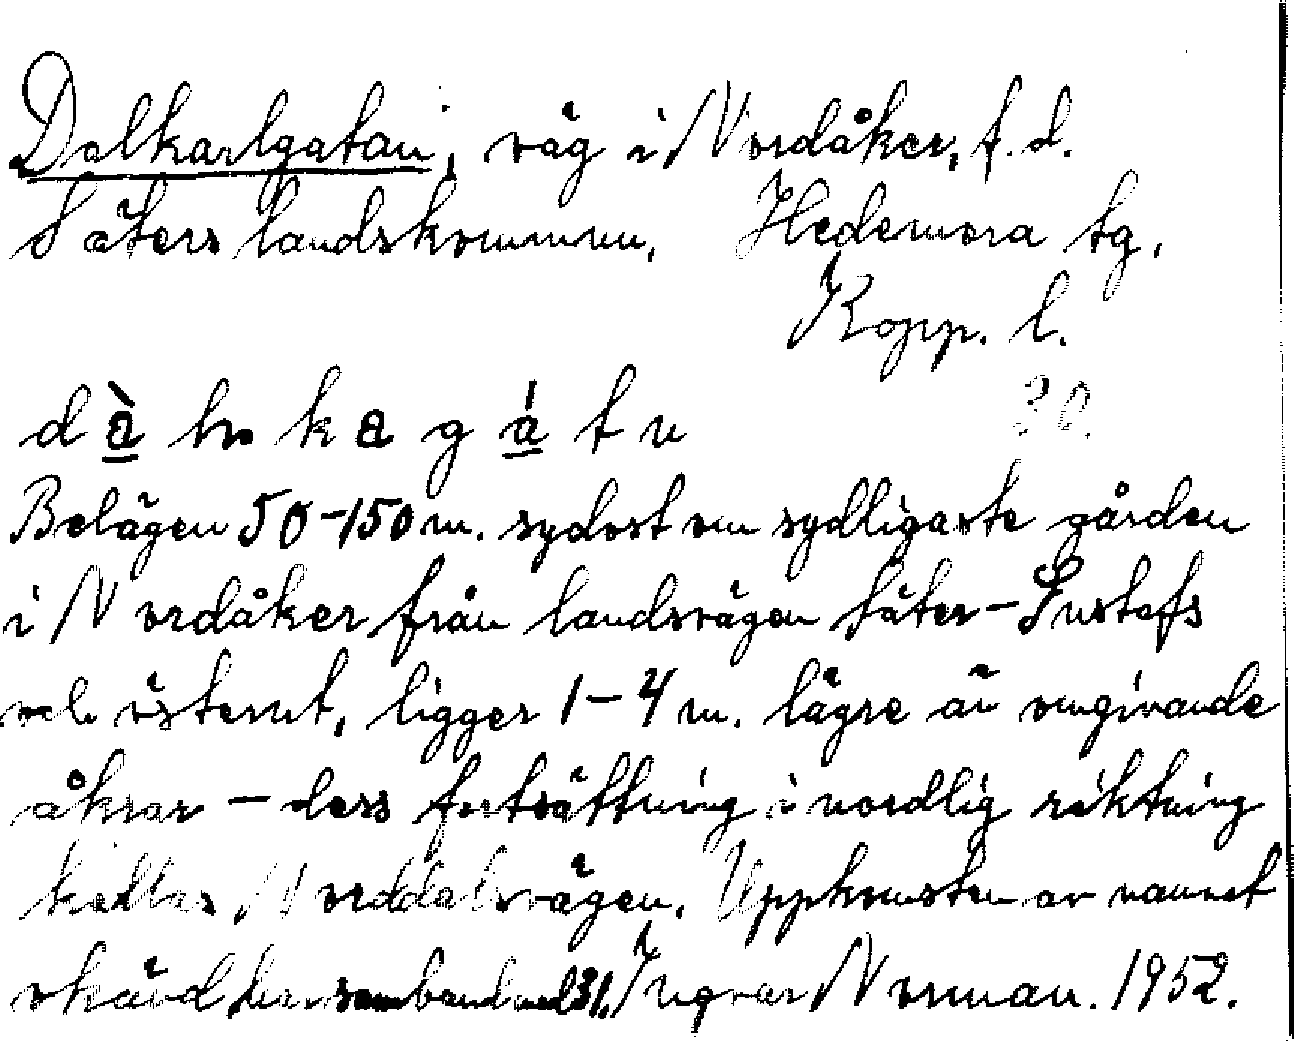 Dalkarlgatan, väg i Nordåker, f.d.
Säters landskommun, Hedemora tg,
Kopp. l.
30.
Belägen 50-150 m. sydost om sydligaste gården
i Nordåker från landsvägen Säter-Gustafs
och österut, ligger 1-4 m. lägre än omgivande
åkrar - dess fortsättning i nordlig riktning
kallas Norddalsvägen. Uppkomsten av namnet
okänd har samband med 31. Ingvar Norman. 1952.